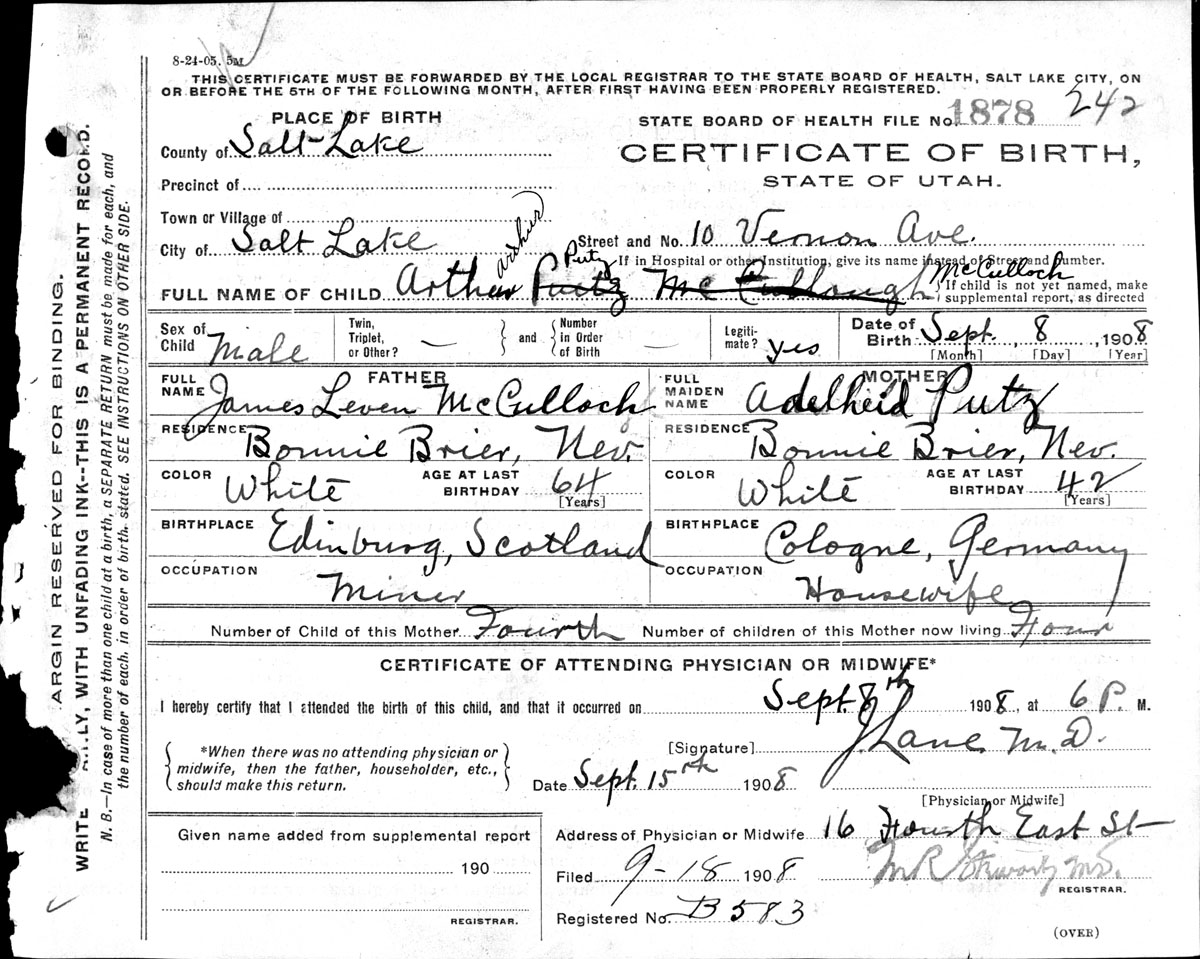 8-24-05. 5M
THIS CERTIFICATE MUST BE FORWARDED BY THE LOCAL REGISTRAR TO THE STATE BOARD OF HEALTH, SALT LAKE CITY, ON
OR BEFORE THE 5TH OF THE FOLLOWING MONTH, AFTER FIRST HAVING BEEN PROPERLY REGISTERED.
PLACE OF BIRTH
STATE BOARD OF HEALTH FILE No. 1878 242
County of Salt Lake
CERTIFICATE OF BIRTH,
Precinct of
STATE OF UTAH.
Town or Village of
City of Salt Lake
Street and No. 10 Vernon Ave.
If in Hospital or other Institution, give its name instead of Street and number.
Arthur Putz McCulloch
FULL NAME OF CHILD Arthur Putz Mc Cullough
If child is not yet named, make
supplemental report, as directed
Sex of Child Male
Twin, Triplet, or Other? — and Number in Order of Birth —
Legiti-mate? yes
Date of Birth Sept. 8, 1908
[Month] [Day] [Year]
FATHER
FULL NAME James Leven McCulloch
MOTHER
FULL MAIDEN NAME Adelheid Putz
RESIDENCE Bonnie Brier, Nev.
RESIDENCE Bonnie Brier, Nev.
COLOR White AGE AT LAST BIRTHDAY 64 [Years]
COLOR White AGE AT LAST BIRTHDAY 42 [Years]
BIRTHPLACE Edinburg, Scotland
BIRTHPLACE Cologne, Germany
OCCUPATION Miner
OCCUPATION Housewife
Number of Child of this Mother Fourth Number of children of this Mother now living Four
CERTIFICATE OF ATTENDING PHYSICIAN OR MIDWIFE*
I hereby certify that I attended the birth of this child, and that it occurred on Sept. 8th 1908, at 6 P. M.
*When there was no attending physician or
midwife, then the father, householder, etc.,
should make this return.
[Signature] J Lane M.D.
Date Sept. 15th 1908
[Physician or Midwife]
Given name added from supplemental report
190
REGISTRAR.
Address of Physician or Midwife 16 Fourth East St
Filed 9-18 1908 M R Stewart M.D.
REGISTRAR.
Registered No. B 583
(OVER)
ARGIN RESERVED FOR BINDING.
WRITE LY, WITH UNFADING INK--THIS IS A PERMANENT RECORD.
N. B.—In case of more than one child at a birth, a SEPARATE RETURN must be made for each, and
the number of each, in order of birth, stated. SEE INSTRUCTIONS ON OTHER SIDE.